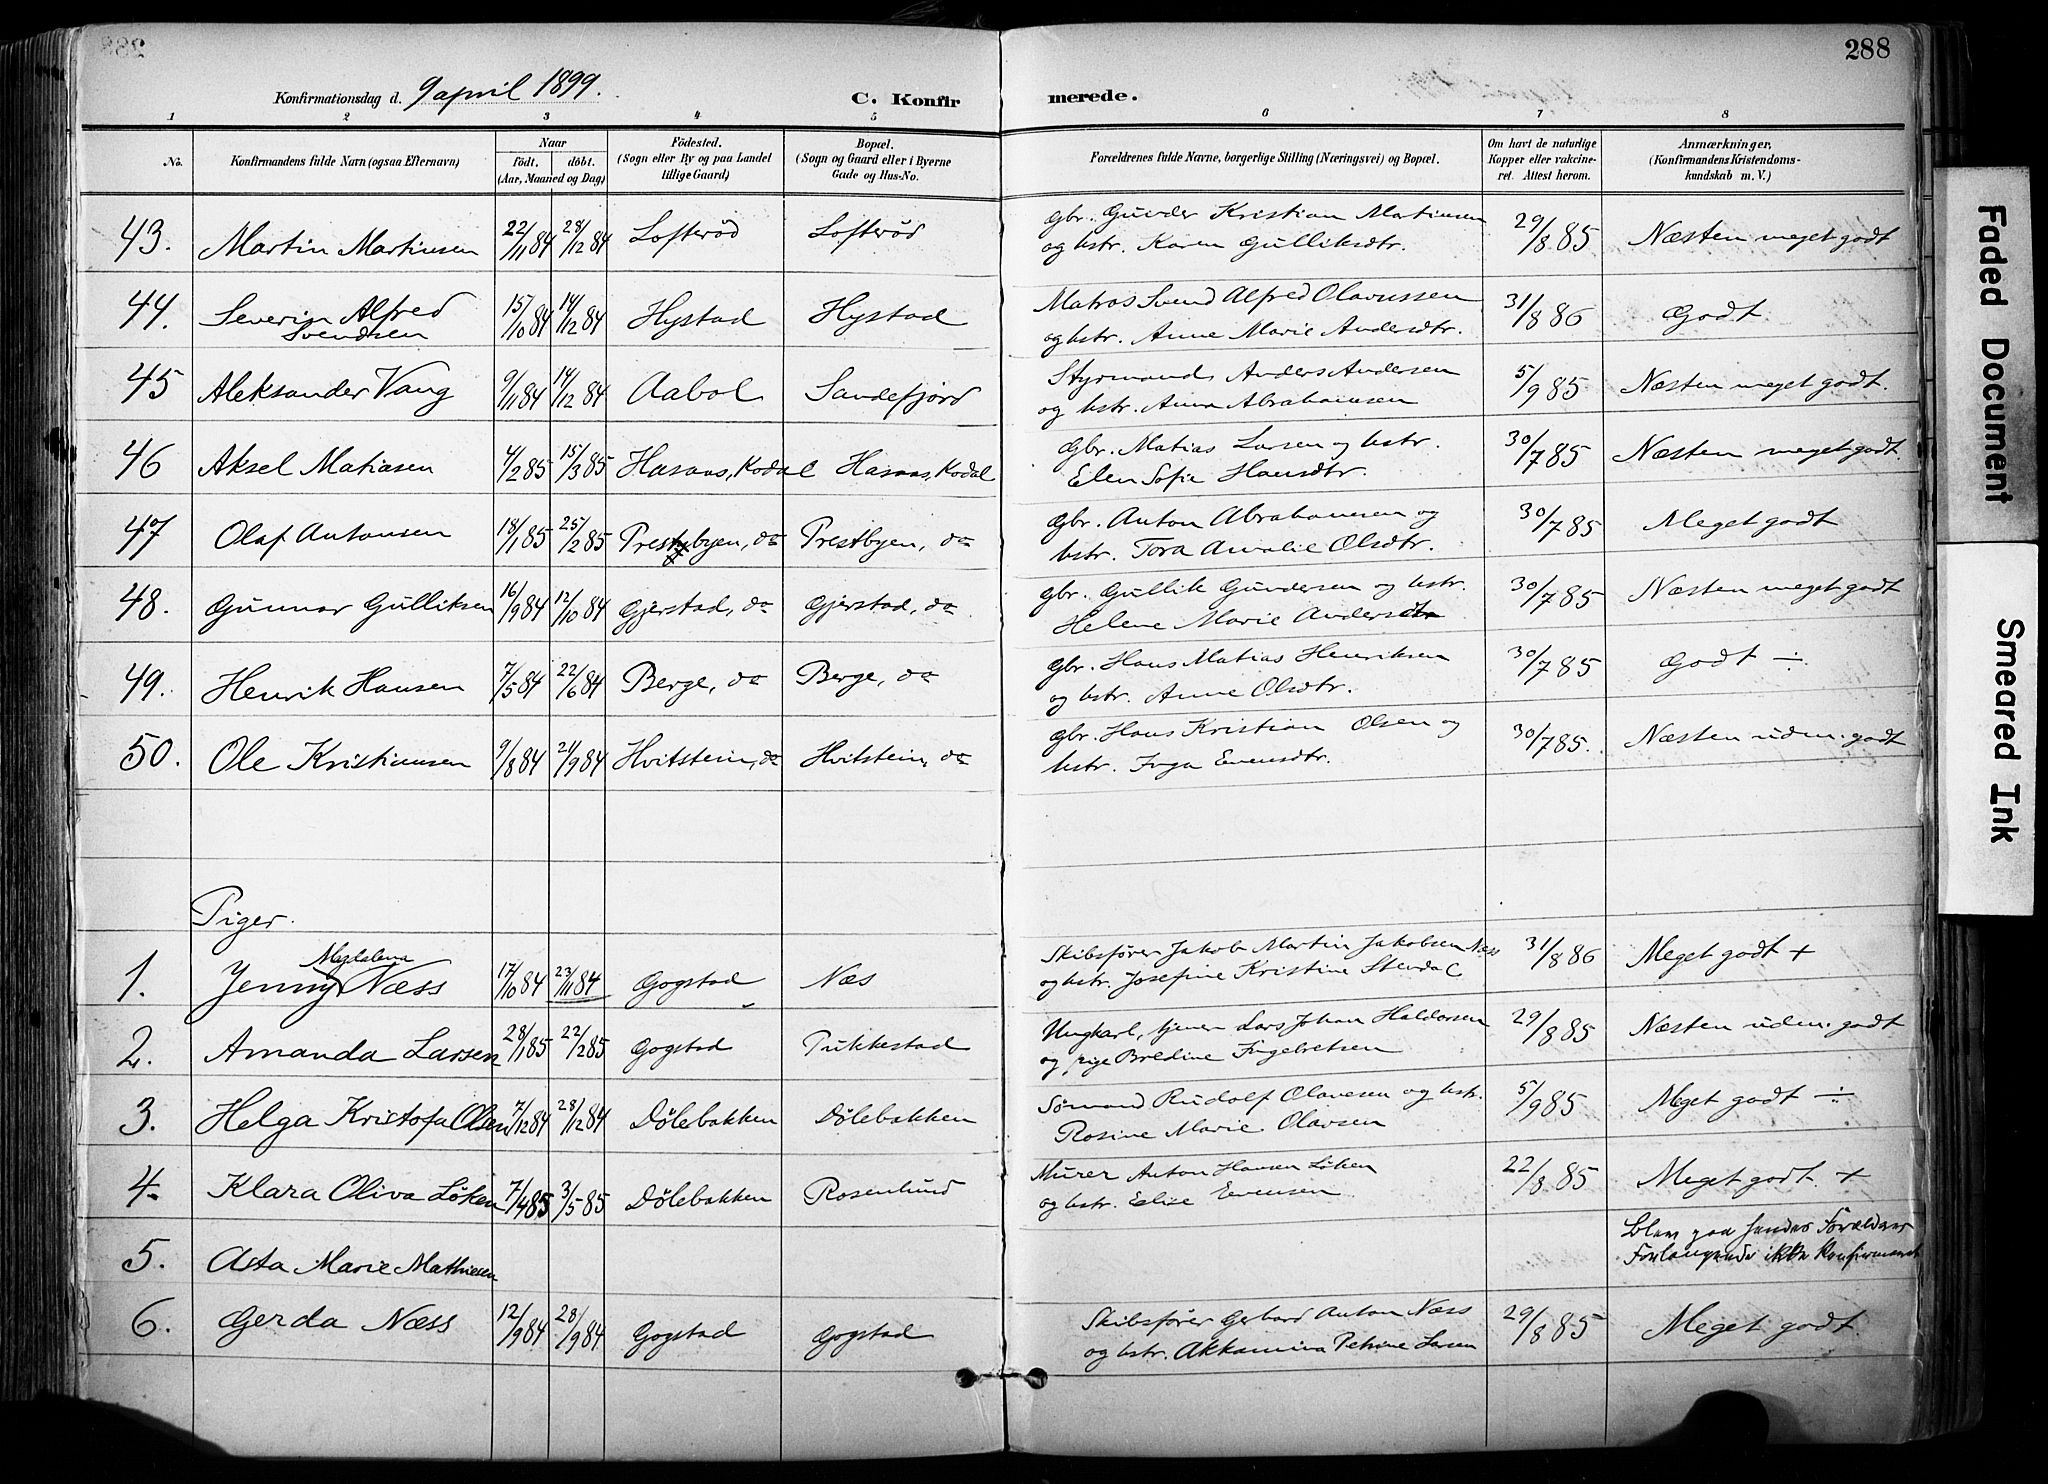 288
Konfirmationsdag d. 9 april 1899.
C. Konfirmerede.
1 2 3 4 5 6 7 8
No.
Konfirmandens fulde Navn (ogsaa Efternavn)
Naar
født. døbt.
(Aar, Maaned og Dag)
Fødested.
(Sogn eller By og paa Landet
tillige Gaard)
Bopæl.
(Sogn og Gaard eller i Byerne
Gade og Hus-No.
Forældrenes fulde Navne, borgerlige Stilling (Næringsvei) og Bopæl.
Om havt de naturlige
Kopper eller vakcine-
ret. Attest herom.
Anmærkninger,
(Konfirmandens Kristendoms-
kundskab m. V.)
43. Martin Martinsen 22/11 84 28/12 84 Lofterød Lofterød Gbr. Gunder Kristian Martinsen 29/8 85 Næsten meget godt
og hstr. Karen Gulliksdtr.
44. Severin Alfred 15/10 84 14/12 84 Hystad Hystad Matros Svend Alfred Olavussen 31/8 86 Godt
Svendsen og hstr. Anne Marie Andersdtr.
45 Aleksander Vang 9/11 84 14/12 84 Aabol Sandefjord Styrmand Anders Andersen 5/9 85 Næsten meget godt.
og hstr. Anna Abrahamsen
46 Aksel Matiasen 4/2 85 15/3 85 Hasaas, Kodal Hasaas, Kodal Gbr. Matias Larsen og hstr. 30/7 85 Næsten meget godt.
Elen Sofie Hansdtr.
47 Olaf Antonsen 18/1 85 25/2 85 Prestbyen, do Prestbyen, do Gbr. Anton Abrahamsen og 30/7 85 Meget godt
hstr. Tora Amalie Olsdtr.
48. Gunnar Gulliksen 16/9 84 12/10 84 Gjerstad, do Gjerstad, do Gbr. Gullik Gundersen og hstr. 30/7 85 Næsten meget godt
Helene Marie Andersdtr
49. Henrik Hansen 7/5 84 22/6 84 Berge, do Berge, do Gbr. Hans Matias Henriksen 30/7 85 Godt ÷
og hstr. Anne Olsdtr.
50. Ole Kristiansen 9/8 84 21/9 84 Hvitstein, do Hvitstein, do Gbr. Hans Kristian Olsen og 30/7 85. Næsten udm. godt
hstr. Inga Evensdtr.
Piger.
Magdalena
1. Jenny Næss 17/10 84 23/11 84 Gogstad Næs Skibsfører Jakob Martin Jakobsen Næss 31/8 86 Meget godt +
og hstr. Josefine Kristine Stendal
2. Amanda Larsen 28/1 85 22/2 85 Gogstad Pukkestad Ungkarl, tjener Lars Johan Haldorsen 29/8 85 Næsten udm. godt
og pige Bredine Ingebretsen
3. Helga Kristofa Olsen 7/12 84 28/12 84 Dølebakken Dølebakken Sømand Rudolf Olavesen og hstr. 5/9 85 Meget godt ÷
Rosine Marie Olavsen
4. Klara Oliva Løken 7/4 85 3/5 85 Dølebakken Rosenlund Murer Anton Hansen Løken 22/8 85 Meget godt +
og hstr. Elise Evensen
5. Asta Marie Mathiesen Blev paa hendes Forældres
Forlangende ikke konfirmeret
6. Gerda Næss 12/9 84 28/9 84 Gogstad Gogstad Skibsfører Gerhard Anton Næss 29/8 85 Meget godt.
og hstr. Petrine Larsen
Faded Document
Smeared Ink